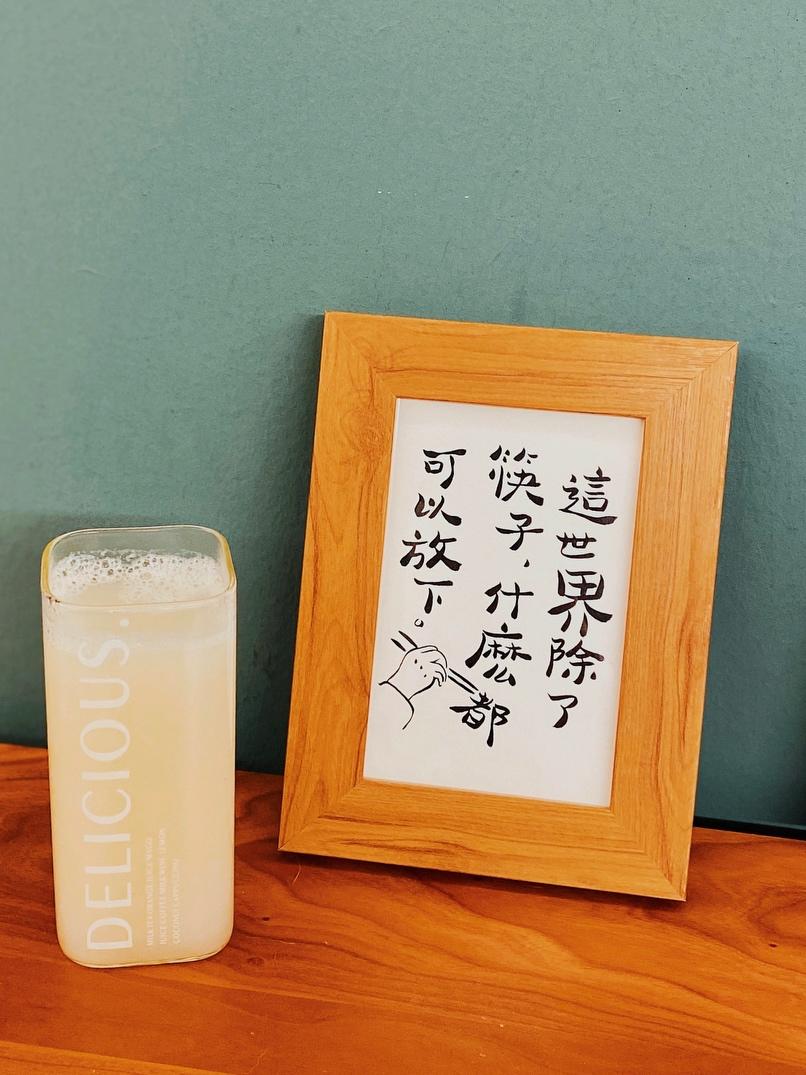 這世界除了
筷子，什麽都
可以放下。
DELICIOUS.
MILK TEA ORANGE JUICE MAGGI
JUICE COFFEE MILK WINE LEMON
COCONUT CAPPUCCINO